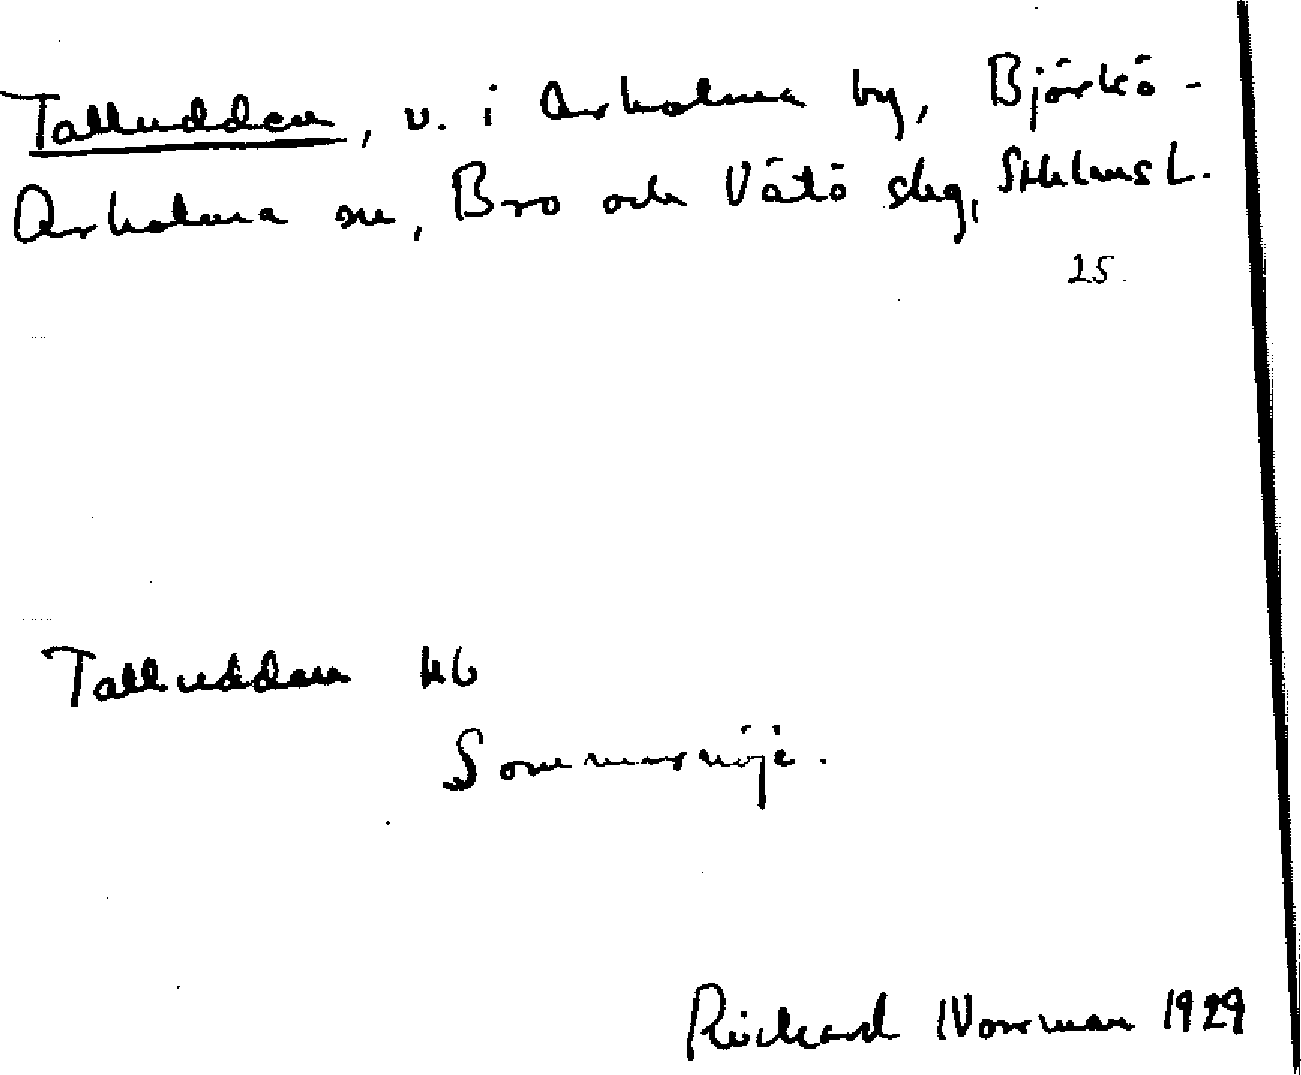 Talludden, v. i Arholma by, Björkö-
Arholma sn, Bro och Vätö slg, Sthlms l.
25.
Talludden
Sommarnöje.
Rickard Norrman 1929